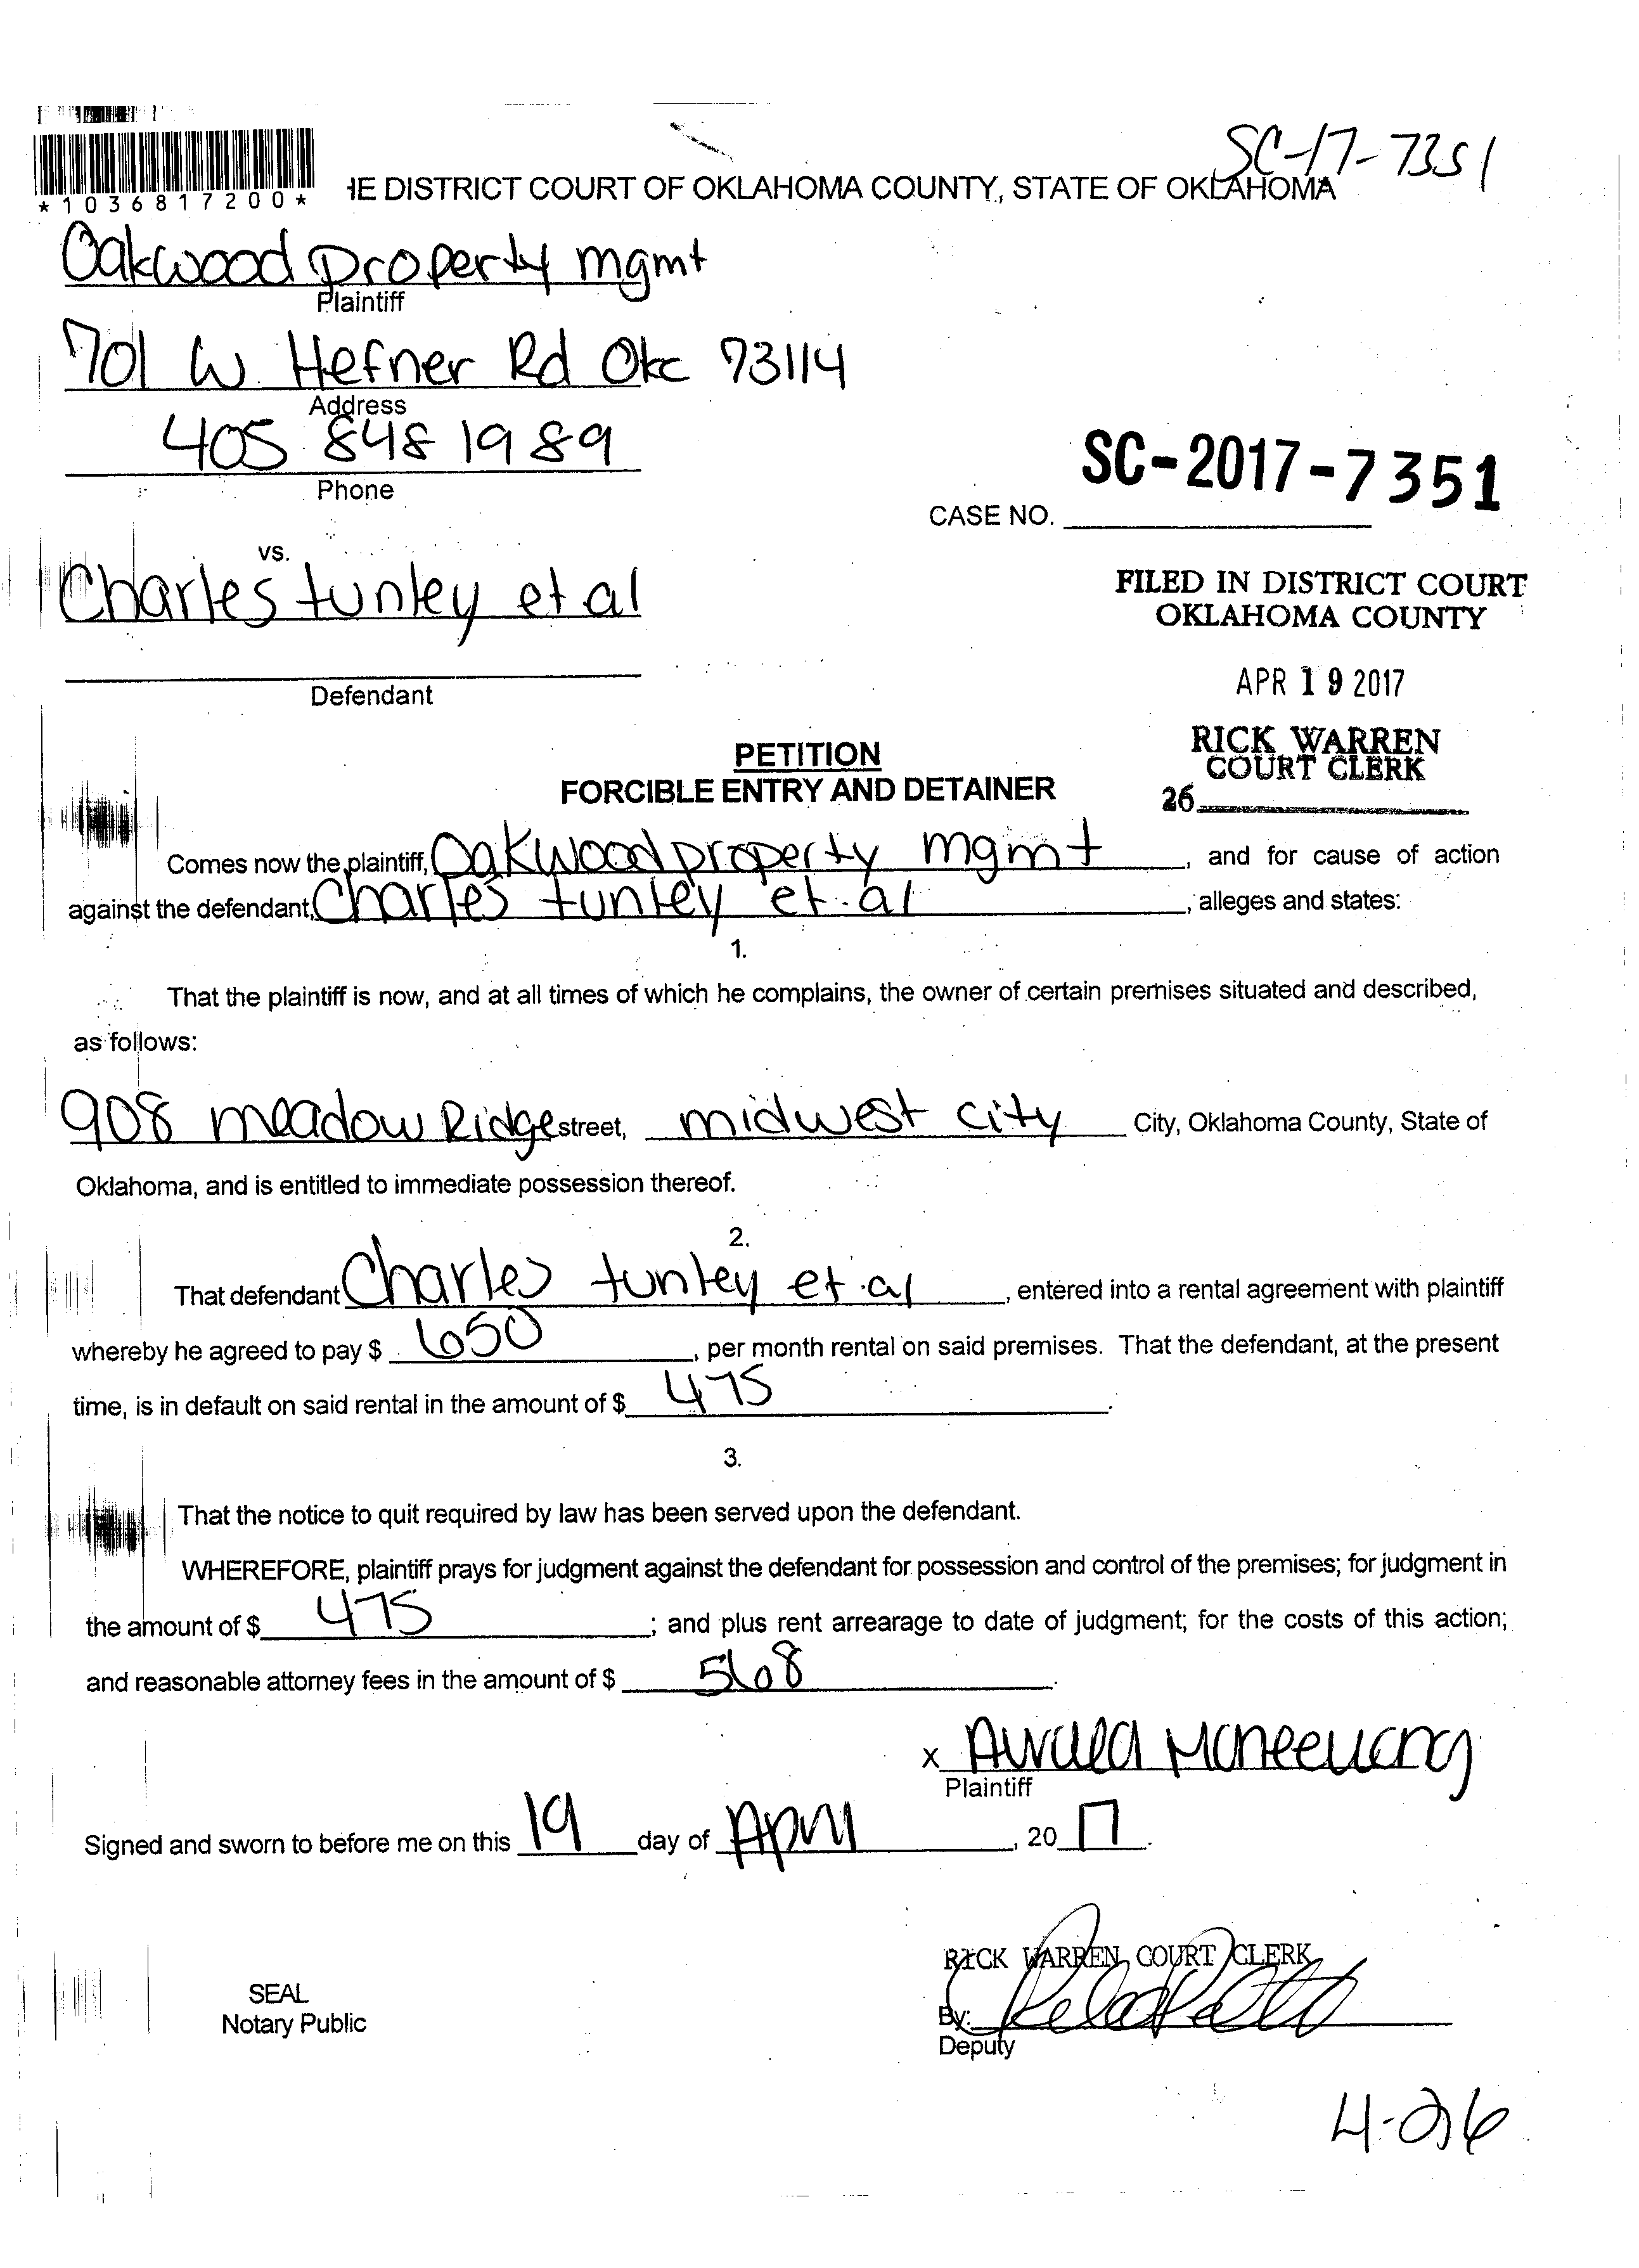 SC-17-7351
*1036817200*
HE DISTRICT COURT OF OKLAHOMA COUNTY, STATE OF OKLAHOMA
Oakwood property mgmt
Plaintiff
701 W. Hefner Rd Okc 73114
Address
405 848 1989
Phone
SC-2017-7351
CASE NO.
vs.
Charles tunley et al
Defendant
FILED IN DISTRICT COURT
OKLAHOMA COUNTY
APR 19 2017
RICK WARREN
COURT CLERK
26
PETITION
FORCIBLE ENTRY AND DETAINER
Comes now the plaintiff, Oakwood property mgmt, and for cause of action
against the defendant, Charles tunley et. al, alleges and states:
1.
That the plaintiff is now, and at all times of which he complains, the owner of certain premises situated and described,
as follows:
908 meadow Ridge street, midwest city City, Oklahoma County, State of
Oklahoma, and is entitled to immediate possession thereof.
2.
That defendant Charles tunley et al, entered into a rental agreement with plaintiff
whereby he agreed to pay $ 650, per month rental on said premises. That the defendant, at the present
time, is in default on said rental in the amount of $ 475.
3.
That the notice to quit required by law has been served upon the defendant.
WHEREFORE, plaintiff prays for judgment against the defendant for possession and control of the premises; for judgment in
the amount of $ 475; and plus rent arrearage to date of judgment; for the costs of this action;
and reasonable attorney fees in the amount of $ 568.
x
Plaintiff
Signed and sworn to before me on this 19 day of April, 2017.
SEAL
Notary Public
RICK WARREN, COURT CLERK
By:
Deputy
4-26